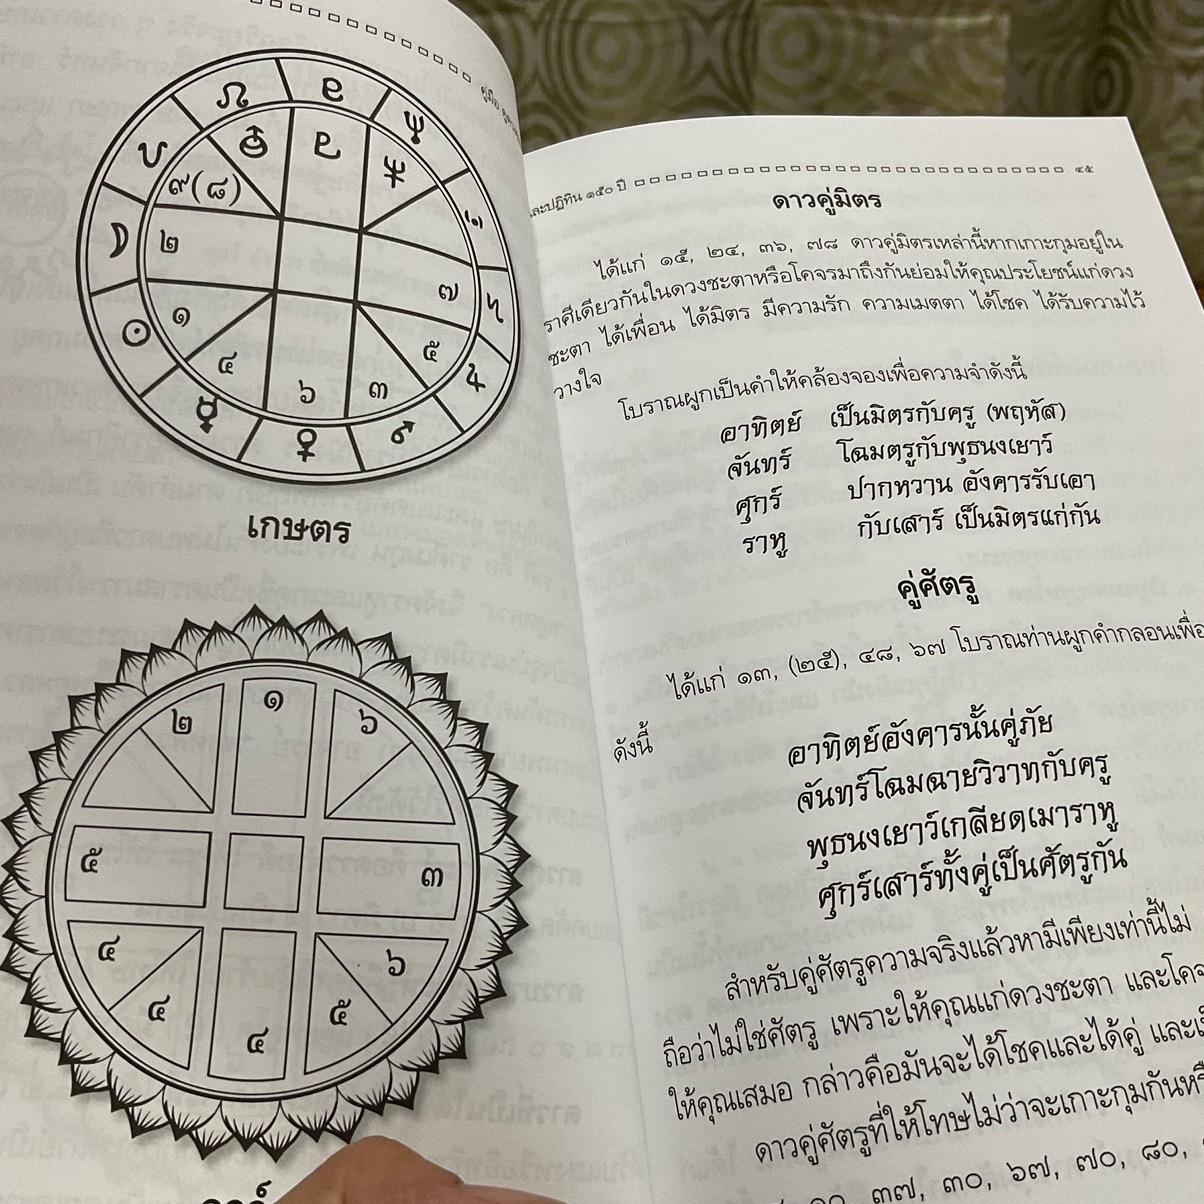 ๙(๘)
๒
๗
๑
๕
๔
๖
๓
เกษตร
๒
๑
๖
๕
๓
๔
๖
๔
๕
๔
และปฏิทิน ๑๕๐ ปี
๔๕
ดาวคู่มิตร
ได้แก่ ๑๕, ๒๔, ๓๖, ๗๘ ดาวคู่มิตรเหล่านี้หากเกาะกุมอยู่ใน
ราศีเดียวกันในดวงชะตาหรือโคจรมาถึงกันย่อมให้คุณประโยชน์แก่ดวง
ชะตา ได้เพื่อน ได้มิตร มีความรัก ความเมตตา ได้โชค ได้รับความไว้
วางใจ
โบราณผูกเป็นคำให้คล้องจองเพื่อความจำดังนี้
อาทิตย์ เป็นมิตรกับครู (พฤหัส)
จันทร์ โฉมตรูกับพุธนงเยาว์
ศุกร์ ปากหวาน อังคารรับเอา
ราหู กับเสาร์ เป็นมิตรแก่กัน
คู่ศัตรู
ได้แก่ ๑๓, (๒๕), ๔๘, ๖๗ โบราณท่านผูกคำกลอนเพื่อ
ดังนี้
อาทิตย์อังคารนั้นคู่ภัย
จันทร์โฉมฉายวิวาทกับครู
พุธนงเยาว์เกลียดเมาราหู
ศุกร์เสาร์ทั้งคู่เป็นศัตรูกัน
สำหรับคู่ศัตรูความจริงแล้วหามีเพียงเท่านี้ไม่
ถือว่าไม่ใช่ศัตรู เพราะให้คุณแก่ดวงชะตา และโคจ
ให้คุณเสมอ กล่าวคือมันจะได้โชคและได้คู่ และเ
ดาวคู่ศัตรูที่ให้โทษไม่ว่าจะเกาะกุมกันหรื
๓๗, ๓๐, ๖๗, ๗๐, ๘๐,